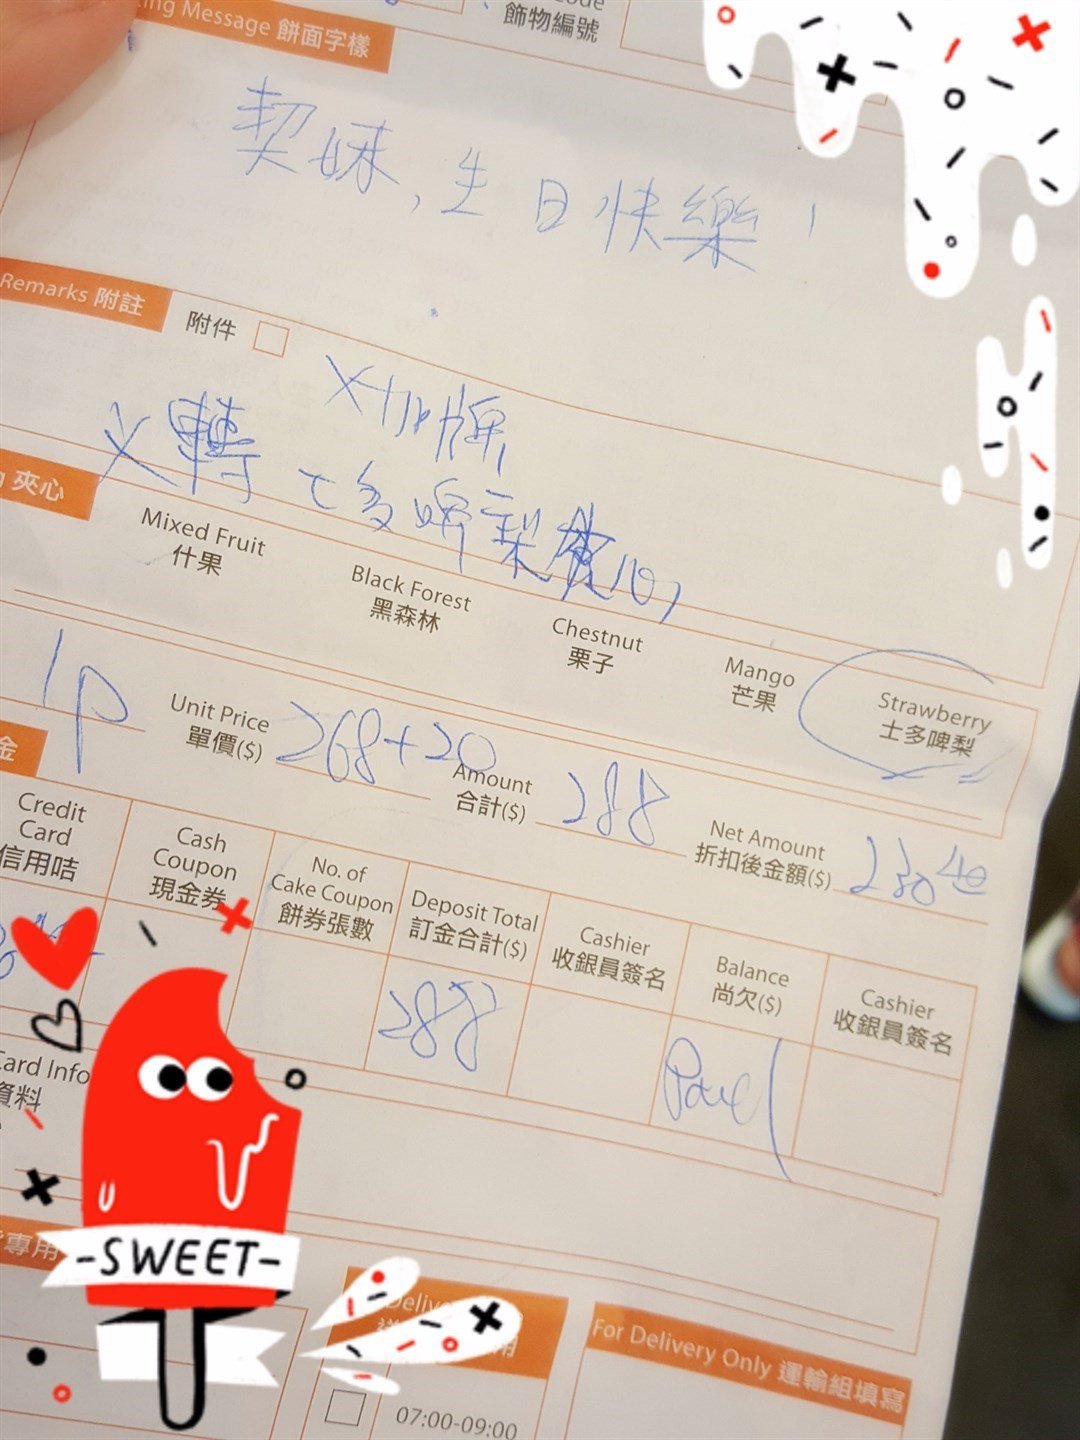 ing Message 餅面字樣
飾物編號
契妹，生日快樂！
Remarks 附註
附件
X加牌
X轉士多啤梨夾心,
夾心
Mixed Fruit
什果
Black Forest
黑森林
Chestnut
栗子
Mango
芒果
Strawberry
士多啤梨
1p
Unit Price
單價($)
268+20
Amount
合計($)
288
Net Amount
折扣後金額($)
230 40
金
Credit
Card
信用咭
Cash
Coupon
現金券
No. of
Cake Coupon
餅券張數
Deposit Total
訂金合計($)
288
Cashier
收銀員簽名
Balance
尚欠($)
Paid
Cashier
收銀員簽名
Card Info
資料
專用
-SWEET-
07:00-09:00
For Delivery Only 運輸組填寫